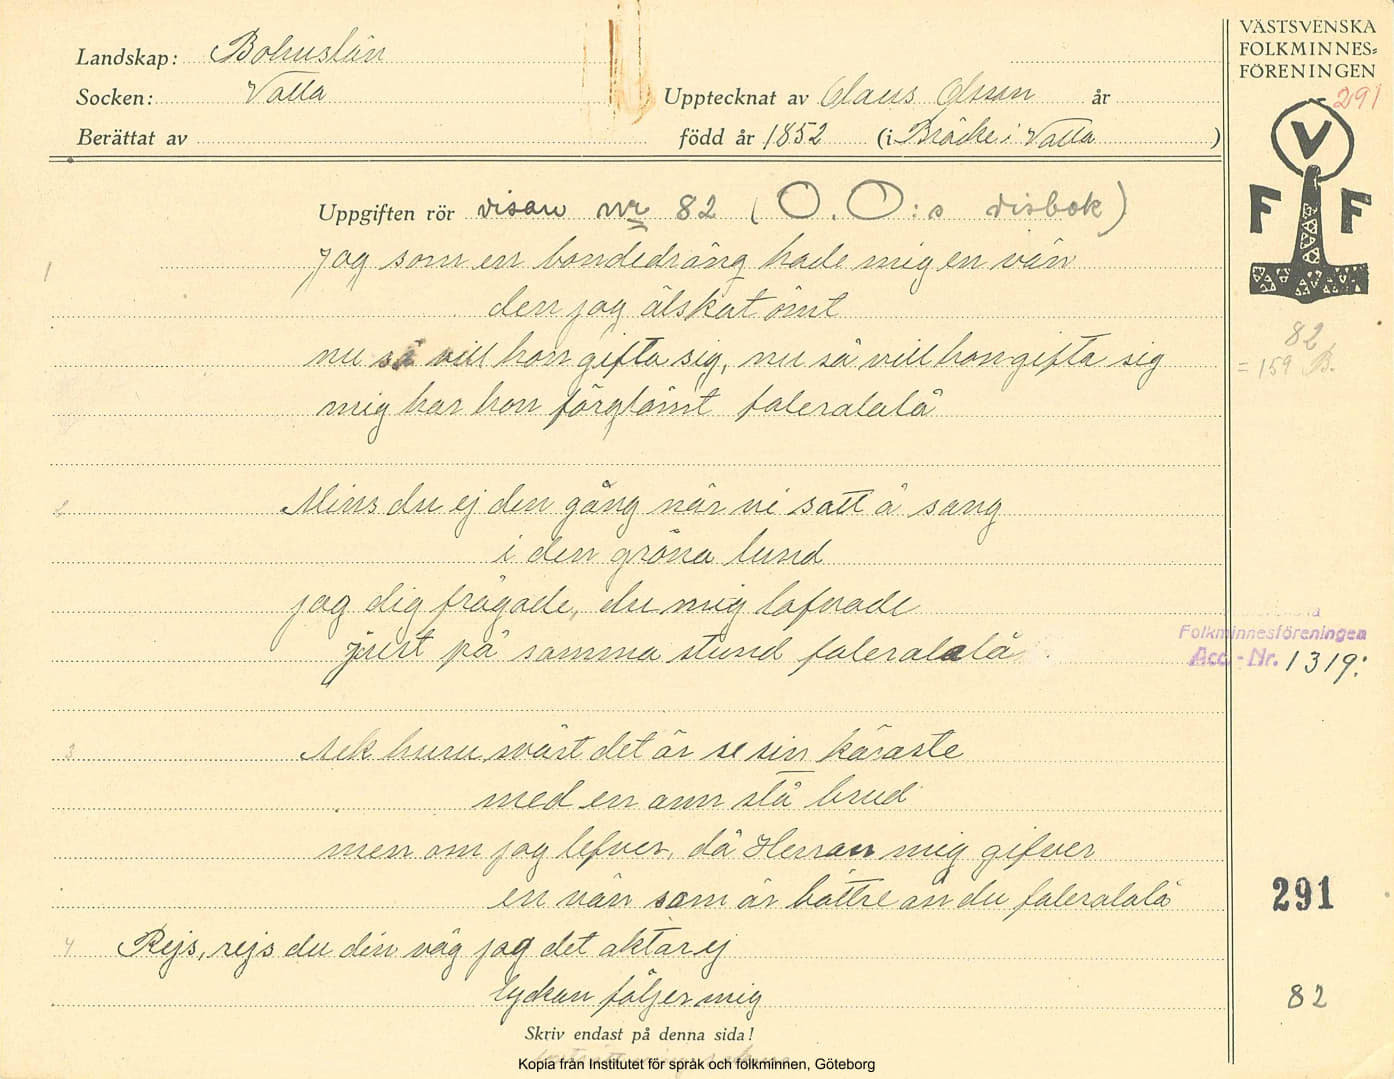 Landskap: Bohuslän
Socken: Valla
Upptecknat av Claus Olsson år
Berättat av
född år 1852 (i Bräcke i Valla )
VÄSTSVENSKA
FOLKMINNES=
FÖRENINGEN
291
V
F F
82
= 159 B.
Uppgiften rör visan nr 82 ( O. O:s visbok)
1 Jag som en bondedräng hade mig en vän
den jag älskat ömt
nu så vill hon gifta sig, nu så vill hon gifta sig
mig har hon förglömt faleralalå
2 Mins du ej den gång när vi satt å sang
i den gröna lund
jag dig frågade, du mig lofvade
just på samma stund faleralalå
Folkminnesföreningen
Acc.-Nr. 1319:
3 Ack huru svårt det är se sin käraste
med en ann stå brud
men om jag lefver, då Herran mig gifver
en vän som är bättre än du faleralalå
291
4 Rejs, rejs du din väg jag det aktar ej
lyckan följer mig
82
Skriv endast på denna sida!
Kopia från Institutet för språk och folkminnen, Göteborg